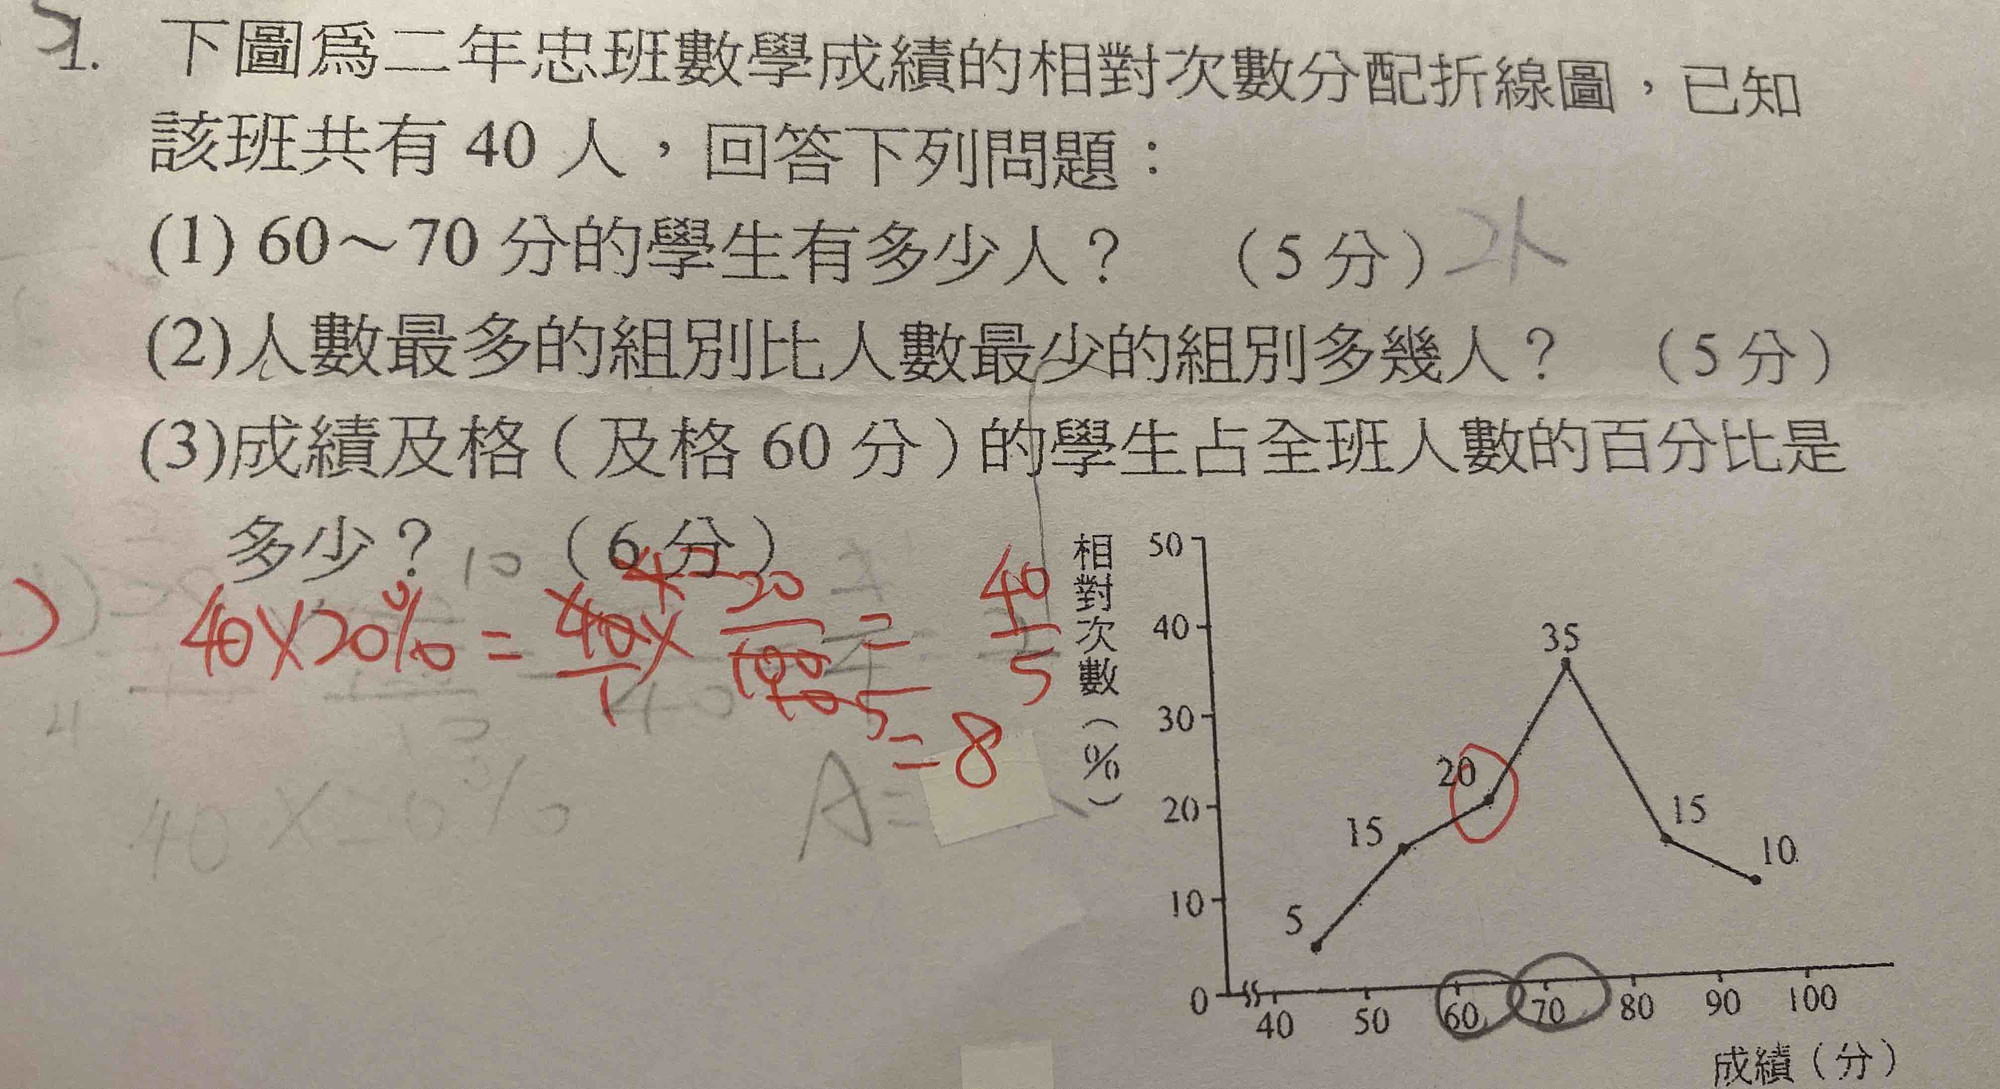 1. 下圖為二年忠班數學成績的相對次數分配折線圖，已知
該班共有 40 人，回答下列問題：
(1) 60～70 分的學生有多少人？ （5 分）
(2)人數最多的組別比人數最少的組別多幾人？ （5 分）
(3)成績及格（及格 60 分）的學生占全班人數的百分比是
多少？ （6 分）
40×20%= 40/1 × 20/100 = 40/5
=8
40×20%
A=
相對次數（%）
50
40
30
20
10
0
5
15
20
35
15
10
40 50 60 70 80 90 100
成績（分）